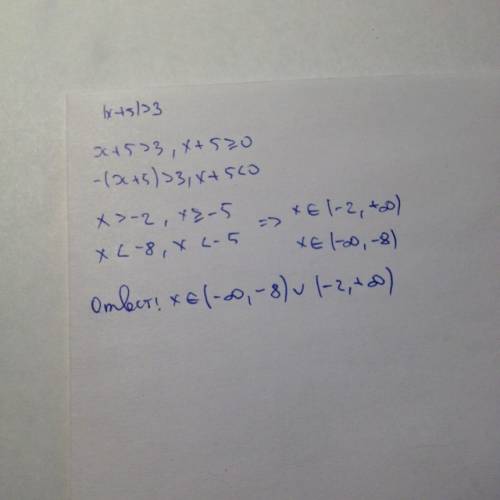 |x+5|>3
x+5>3, x+5≥0
-(x+5)>3, x+5<0
x>-2, x≥-5 => x∈(-2,+∞)
x<-8, x<-5 x∈(-∞,-8)
Ответ: x∈(-∞,-8)∪(-2,+∞)